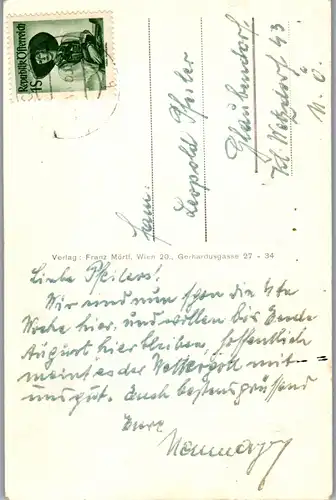 Republik Österreich
1S
Fam.
Leopold Pfeiler
Glaubendorf
Kl. Wetzdorf 43
N.Ö.
Verlag: Franz Mörtl, Wien 20., Gerhardusgasse 27 - 34
Liebe Pfeilers!
Wir sind nun schon die 4te
Woche hier, und wollen bis Ende
August hier bleiben, hoffentlich
meint es der Wettergott mit
uns gut. Euch bestens grüssend
Eure